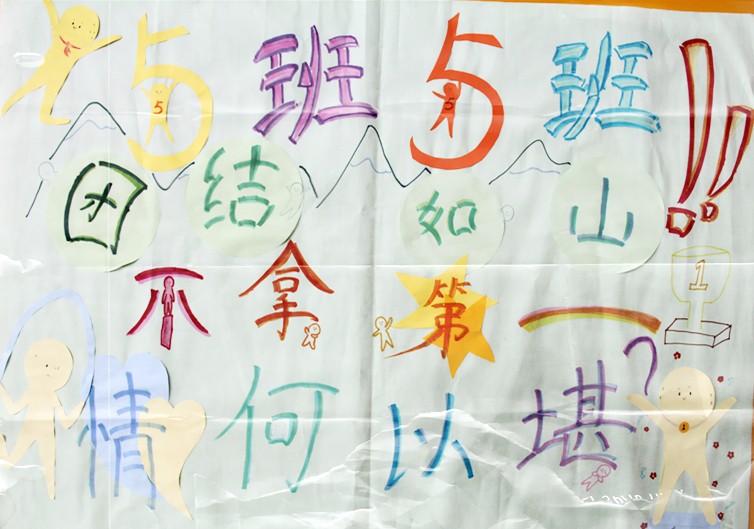 5班5班!!
团结如山
不拿第一
情何以堪?